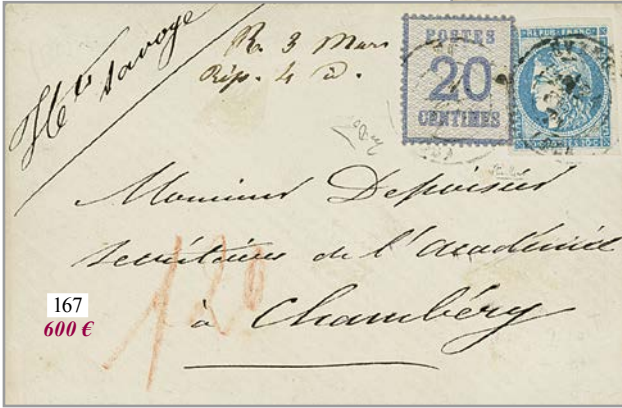 Hte Savoye
R. 3 Mars
Rép. 4 d.
POSTES
20
CENTIMES
REPUB. FRANC.
Monsieur Depoisier
Secrétaire de l'Académie
à Chambéry
167
600 €